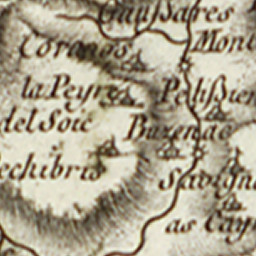 Gaußares
Coronos
Mont
la Peyre
Pelißier
del Soie
Bazenac
echibris
Savign
as Cay